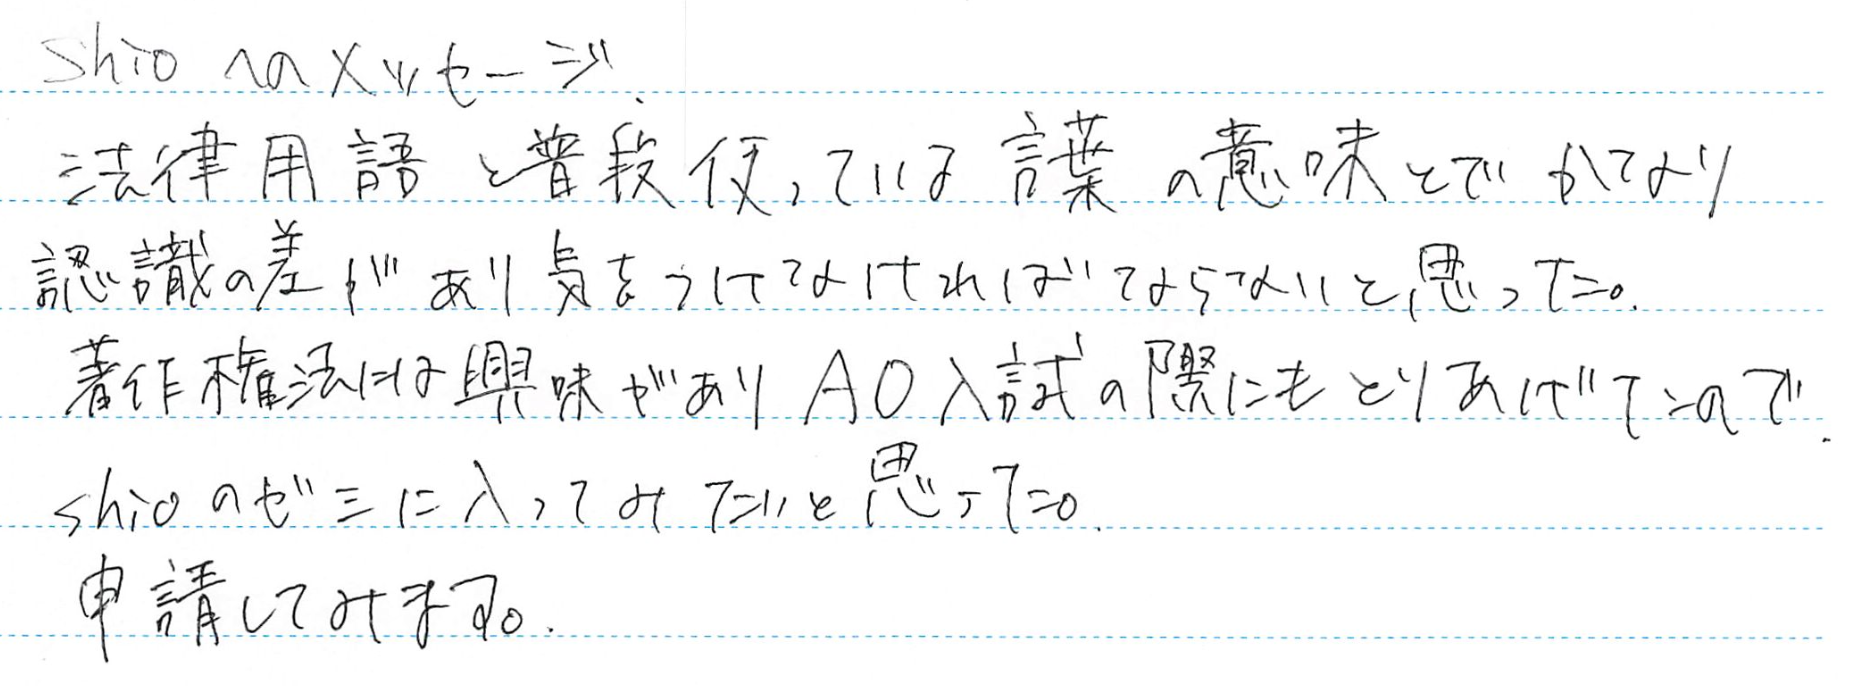 shioへのメッセージ
法律用語と普段使っている言葉の意味とでかなり
認識の差があり気をつけなければならないと思った。
著作権法には興味がありAO入試の際にもとりあげたので
shioのゼミに入ってみたいと思った。
申請してみます。